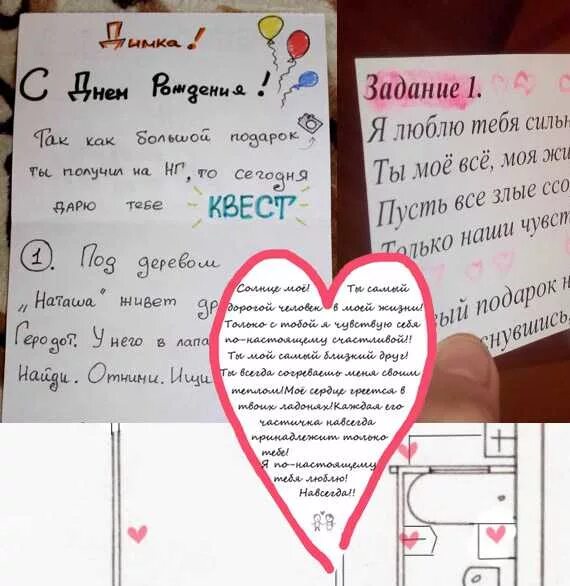 Димка!
С Днем Рождения!
Так как большой подарок
ты получил на НГ, то сегодня
дарю тебе КВЕСТ
1. Под деревом
„Наташа" живет
Геродот. У него в лапа
Найди. Отними. Ищи
Задание 1.
Я люблю тебя
Ты моё всё, моя
Пусть все злые
Только наши
подарок
Солнце моё! Ты самый
дорогой человек в моей жизни!
Только с тобой я чувствую себя
по-настоящему счастливой!!
Ты мой самый близкий друг!
Ты всегда согреваешь меня своим
теплом!Моё сердце греется в
твоих ладонях!Каждая его
частичка навсегда
принадлежит только
тебе!
Я по-настоящему
тебя люблю!
Навсегда!!